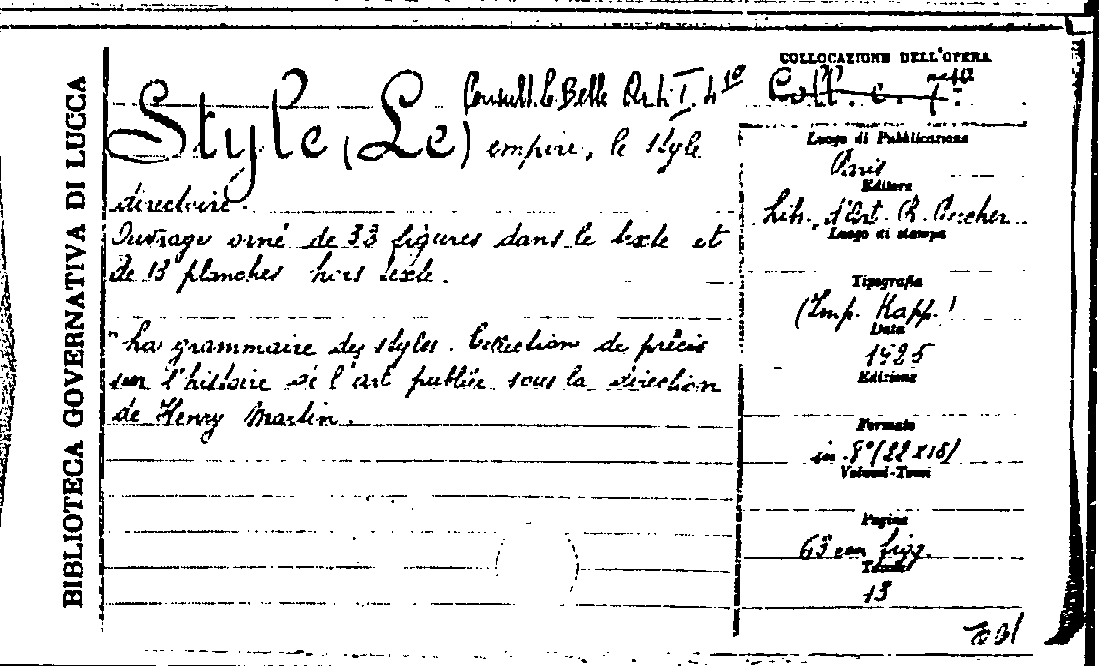 BIBLIOTECA GOVERNATIVA DI LUCCA
Consult. le Belle Arti I. 4
Style (Le) empire, le style
directoire.
Ouvrage orné de 33 figures dans le texte et
de 13 planches hors texte.
"La grammaire des styles. Collection de précis
sur l'histoire de l'art publiée sous la direction
de Henry Martin.
COLLOCAZIONE DELL'OPERA
Coll. c.
Luogo di Pubblicazione
Paris
Editore
Lib. d'Art. R. Ducher
Luogo di stampa
Tipografia
(Imp. Kapp.)
Data
1925
Edizione
Formato
in 8° (22 x 16)
Volumi-Tomi
Pagine
63 con figg.
Tavole
13